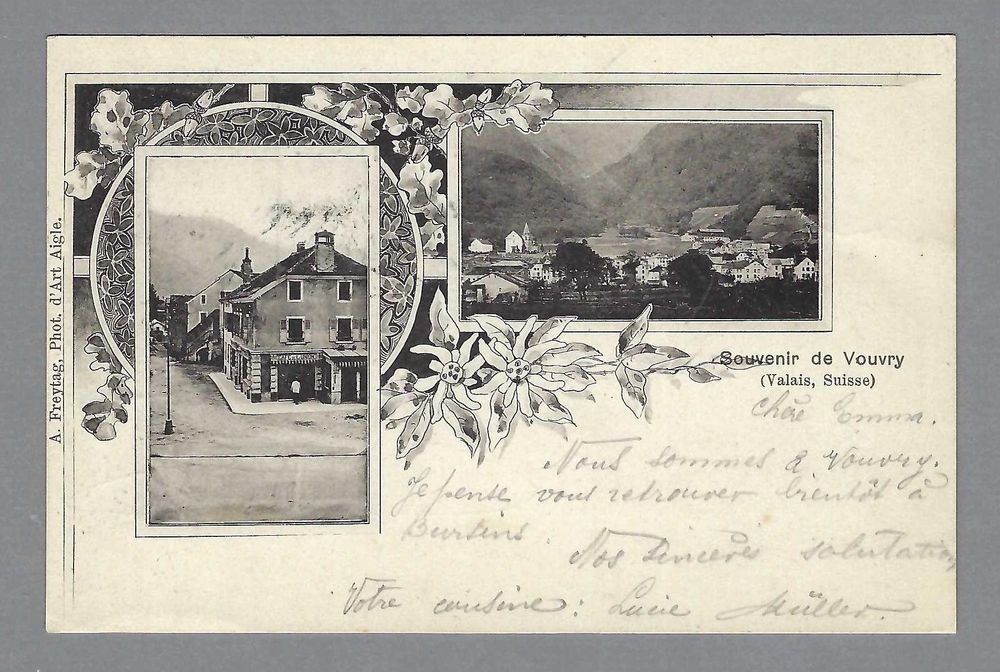 A. Freytag, Phot. d'Art Aigle.
Souvenir de Vouvry
(Valais, Suisse)
Chère Emma.
Nous sommes à Vouvry.
Je pense vous retrouver bientôt à
Bursins
Nos sincères salutations
Votre cousine: Lucie Müller.